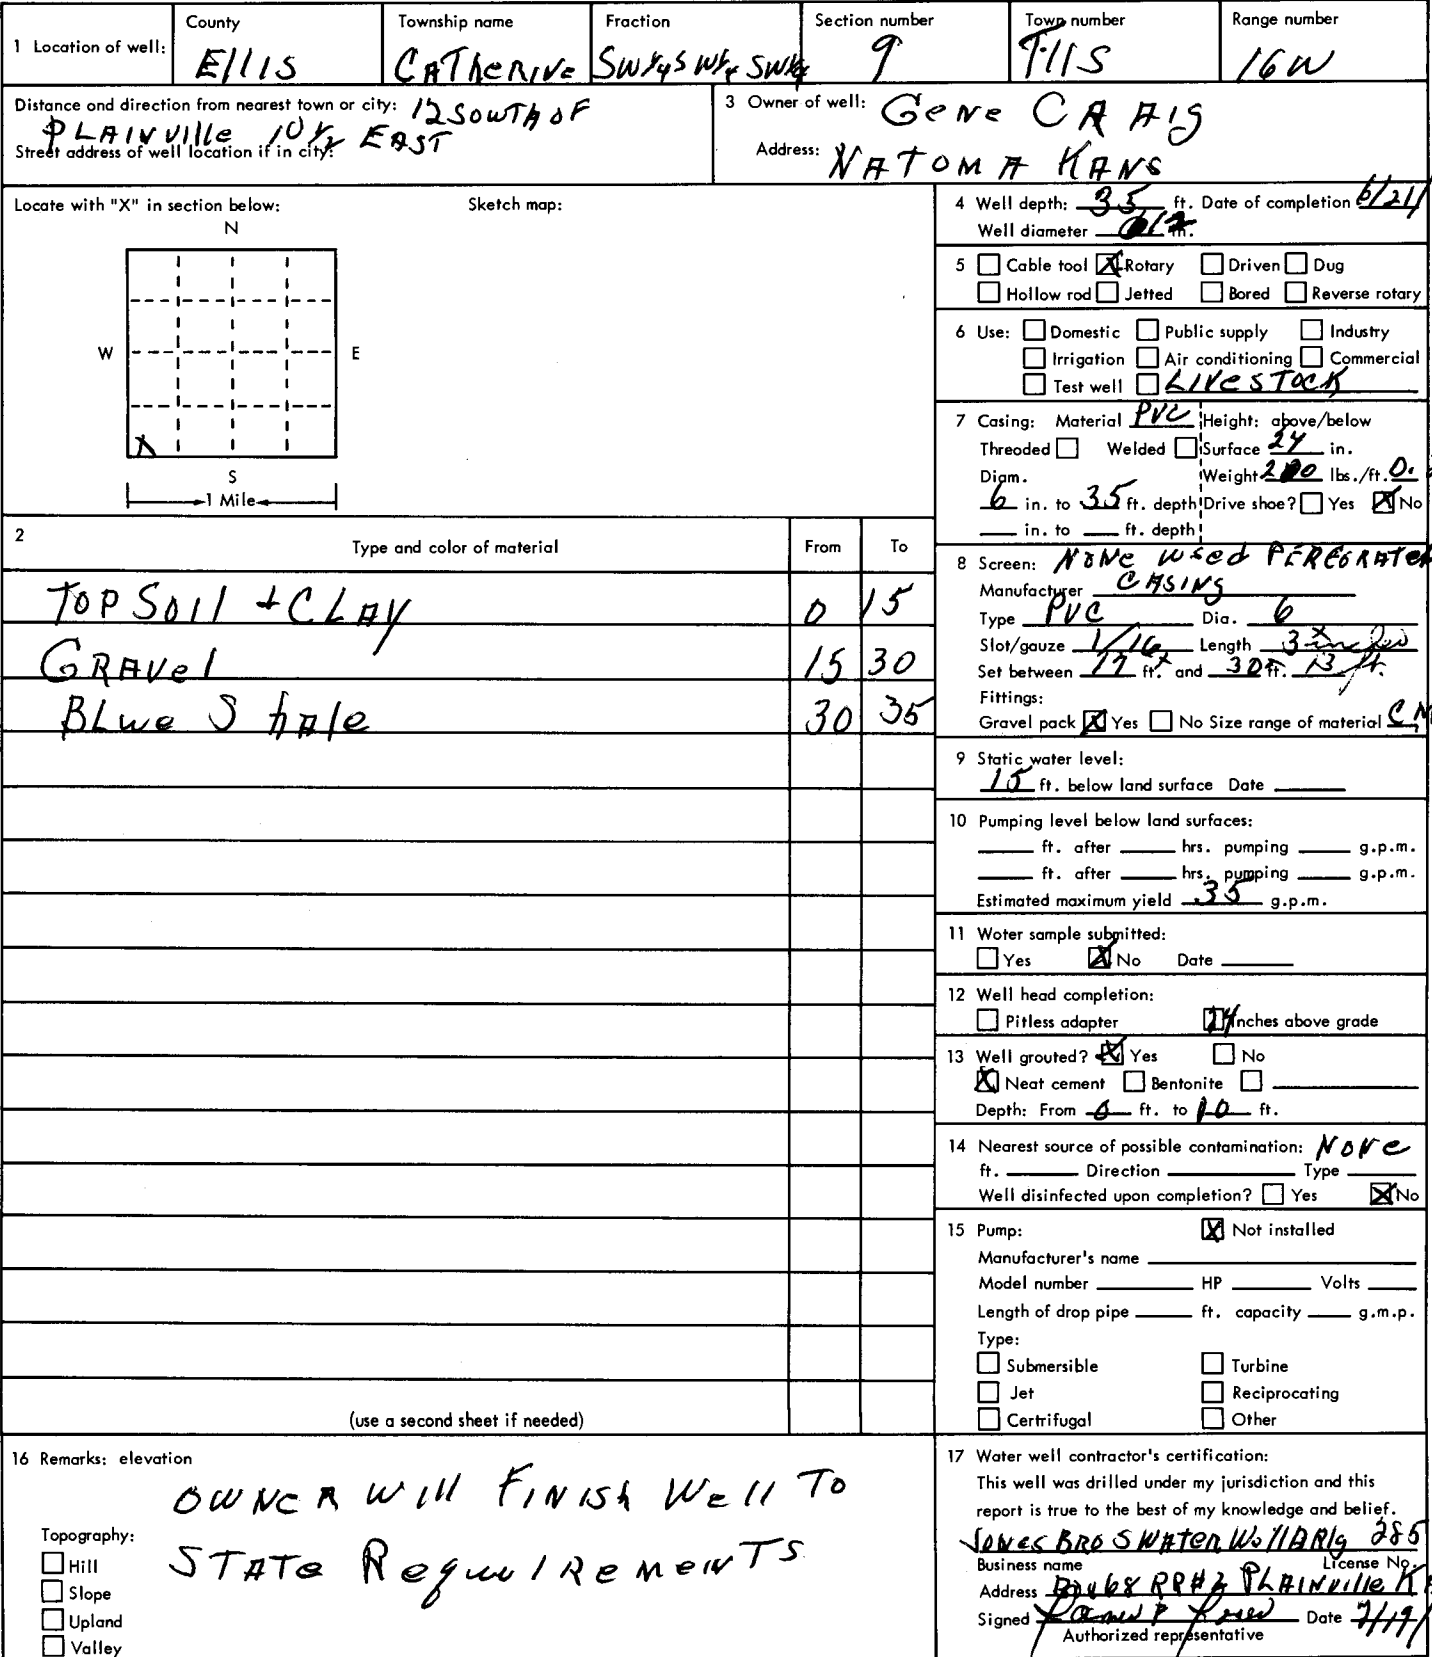 1 Location of well:
County
Ellis
Township name
CATherINe
Fraction
SW¼ SW¼ SW¼
Section number
9
Town number
T11S
Range number
16W
Distance and direction from nearest town or city: 12 SOUTH OF
PLAINVIlle 10½ EAST
Street address of well location if in city:
3 Owner of well: GeNe CRAIg
Address: NATOMA KANS
Locate with "X" in section below:
Sketch map:
N
W
E
X
S
1 Mile
2
Type and color of material
From
To
TOP SOIL + CLAY 0 15
GRAVel 15 30
BLue Shale 30 35
(use a second sheet if needed)
4 Well depth: 35 ft. Date of completion 6/21/
Well diameter in.
5 Cable tool X Rotary Driven Dug
Hollow rod Jetted Bored Reverse rotary
6 Use: Domestic Public supply Industry
Irrigation Air conditioning Commercial
Test well LIVeSTOCK
7 Casing: Material PVC Height: above/below
Threoded Welded Surface 24 in.
Diam. Weight lbs./ft.
6 in. to 35 ft. depth Drive shoe? Yes X No
in. to ft. depth
8 Screen: NONE Used
Manufacturer CASING
Type PVC Dia. 6
Slot/gauze 1/16 Length 3 inches
Set between 17 ft. and 30 ft. 13 ft.
Fittings:
Gravel pack X Yes No Size range of material
9 Static water level:
15 ft. below land surface Date
10 Pumping level below land surfaces:
ft. after hrs. pumping g.p.m.
ft. after hrs. pumping g.p.m.
Estimated maximum yield 35 g.p.m.
11 Woter sample submitted:
Yes X No Date
12 Well head completion:
Pitless adapter 24 Inches above grade
13 Well grouted? X Yes No
X Neat cement Bentonite
Depth: From 0 ft. to 10 ft.
14 Nearest source of possible contamination: NONe
ft. Direction Type
Well disinfected upon completion? Yes X No
15 Pump: X Not installed
Manufacturer's name
Model number HP Volts
Length of drop pipe ft. capacity g.m.p.
Type:
Submersible Turbine
Jet Reciprocating
Certrifugal Other
16 Remarks: elevation
OWNeR WIll FINISh Well To
STATe RequIReMeNTS
Topography:
Hill
Slope
Upland
Valley
17 Water well contractor's certification:
This well was drilled under my jurisdiction and this
report is true to the best of my knowledge and belief.
JONES BROS WATer Well DRlg 285
Business name License No.
Address Box 68 RR#2 PLAINVIlle
Signed Date 7/19/
Authorized representative